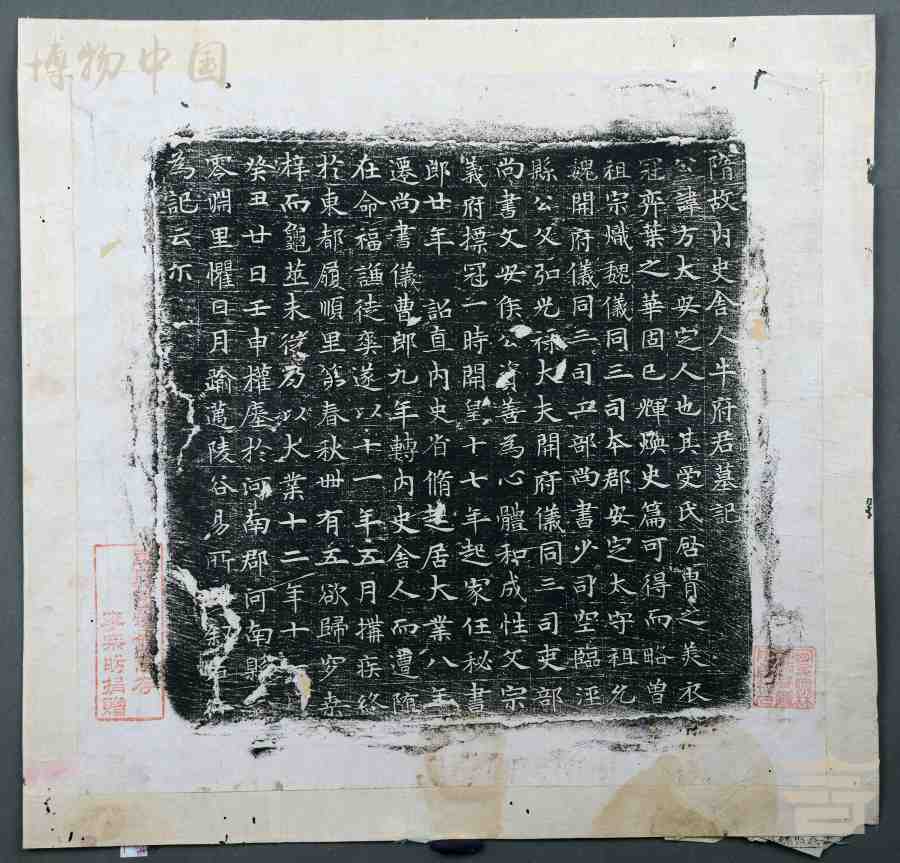 博物中国
隋故內史舍人牛府君墓記
公諱方大安定人也其受氏啓胄之美衣
冠弈葉之華固已輝煥史篇可得而略曾
祖宗熾魏儀同三司本郡安定太守祖允
魏開府儀同三司工部尚書少司空臨涇
縣公父弘光祿大夫開府儀同三司吏部
尚書文安侯公資善為心體和成性文宗
義府摽冠一時開皇十七年起家任秘書
郎廿年 詔直內史省脩起居大業八年
遷尚書儀曹郎九年轉內史舍人而遭隨
在命福謙徒奕遂以十一年五月搆疾終
於東都履順里第春秋卌有五欲歸窆桑
梓而龜筮未從乃以大業十二年十一
癸丑廿日壬申權塵於河南郡河南縣
零淵里懼日月踰邁陵谷易所
為記云尒
李 捐贈